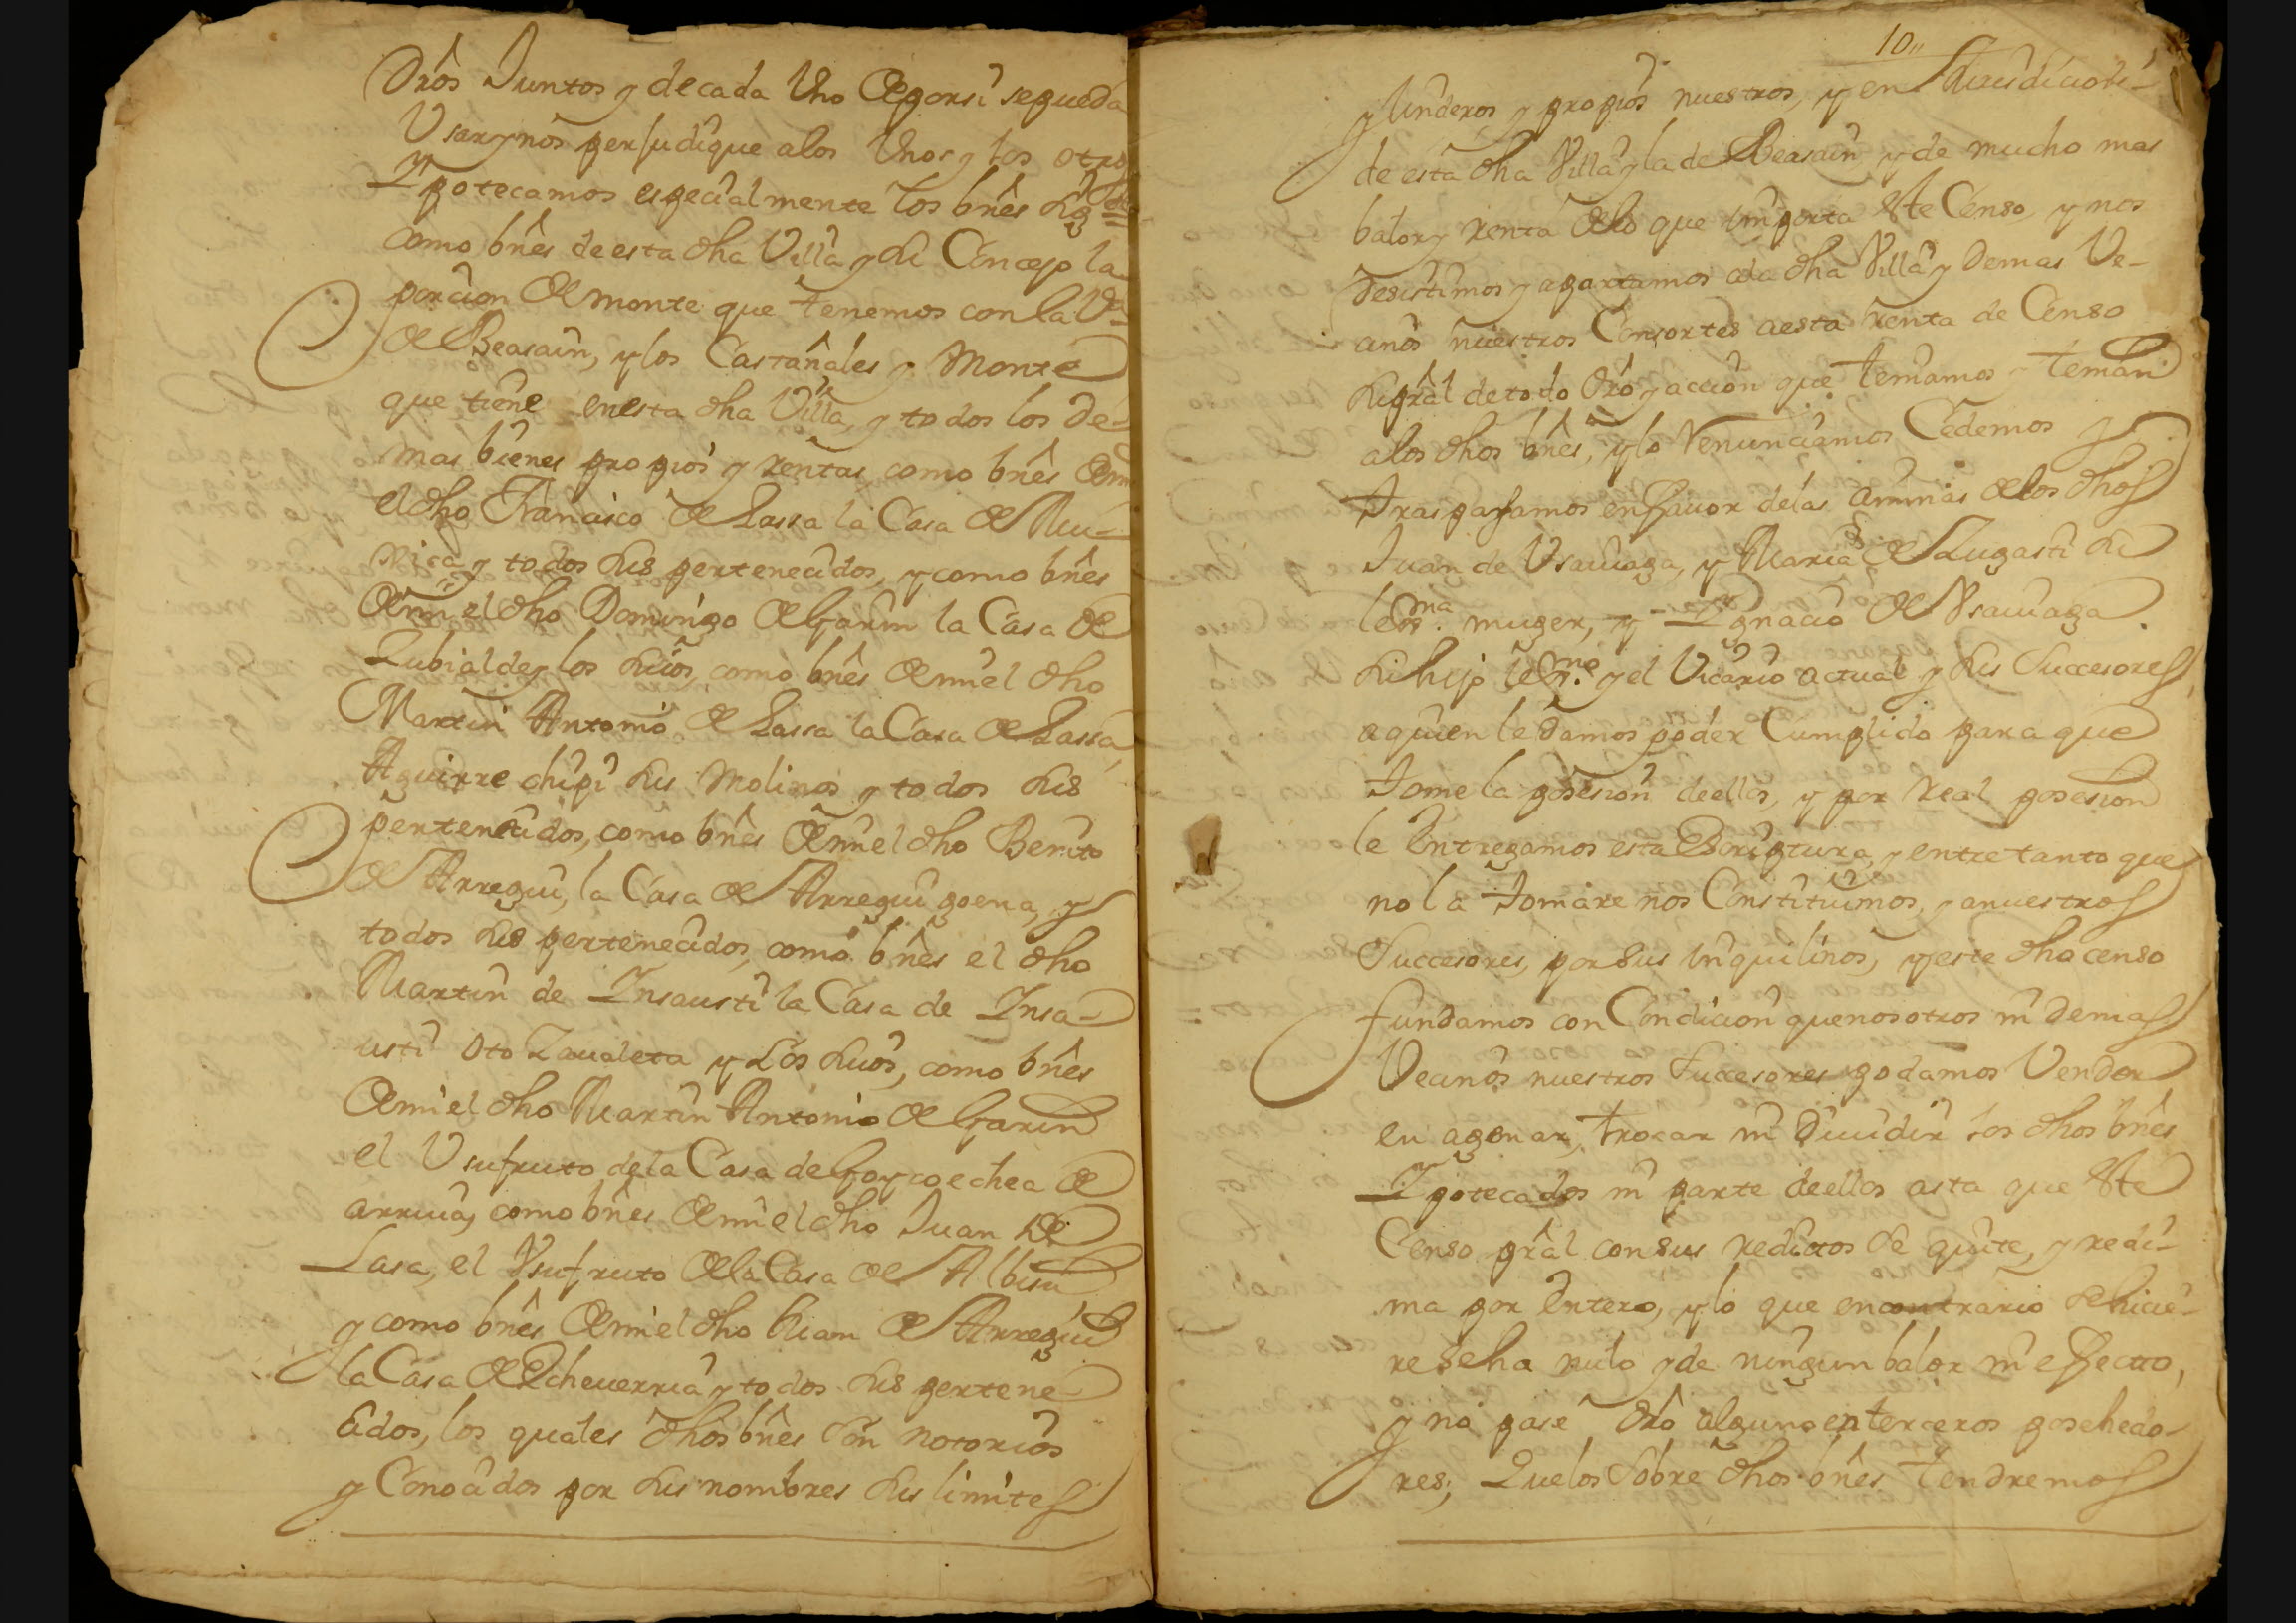 Drôs Juntos y decada Uno deporsi sepueda
Usar y nos perjudique alos Unos y los otros
Ypotecamos especialmente los bnês
como bnês de esta dha Villa y su Concejo la
porcion de monte que tenemos con la Vª
de Beasain, y los Castañales y Monte
que tiene en esta dha Villa, y todos los de-
mas bienes propios y rentas, como bnês demi
el dho Francisco de Lassa la Casa de
y todos sus pertenecidos, y como bnês
demi el dho Domingo de Garin la Casa de
Zubialde y los suios, como bnês demi el dho
Martin Antonio de Lassa la Casa de Lassa,
Aguirre chipi sus Molinos y todos sus
pertenecidos, como bnês demi el dho Benito
de Arregui, la Casa de Arregui goena, y
todos sus pertenecidos, como bnês el dho
Martin de Insausti la Casa de Insa-
usti oto Zaualeta y Los suios, como bnês
demi el dho Martin Antonio de Garin
el Usufruto dela Casa de Goycoechea de
arriua, como bnês demi el dho Juan de
Lasa, el Usufruto dela Casa de Albisu
y como bnês demi el dho Juan de Arregui
la Casa de Echeuerria y todos sus pertene
cidos, los quales dhos bnês son notorios
y Conocidos por sus nombres sus limites
10,,
y linderos y propios nuestros, y en Jurisdicioni-
de esta dha Villa y la de Beasain, y de mucho mas
balor y renta delo que importa este Censo, y nos
desistimos y apartamos ala dha Villa y demas Ve-
cinos nuestros Consortes a esta renta de Censo
su prâl de todo drô y accion que teniamos y tenian
alos dhos bnês, y lo renunciamos Cedemos y
traspasamos en fauor delas animas delos dhos
Juan de Usauiaga, y Maria de Lugasti su
lexma. muger, y Ygnacio de Usauiaga.
su hijo lexmo. y el Vicario actual y sus Succesores,
a quien le damos poder Cumplido para que
tome la posesion de ellos, y por real posesion
le Entregamos esta Escriptura, y entre tanto que
no la tomare nos Constituimos, y a nuestros
Succesores, por sus inquilinos, y este dho censo
fundamos con Condicion que nosotros ni demas
Vecinos nuestros Succesores podamos Vender
en agenar, trocar ni diuidir los dhos bnês
Ypotecados ni parte de ellos asta que este
Censo prâl con sus reditos se quite, y redi-
ma por Entero, y lo que en contrario se hicie-
re seha nulo y de ningun balor ni effecto,
y no pase drô alguno en terceros posehedo-
res; Que los Sobre dhos bnês tendremos